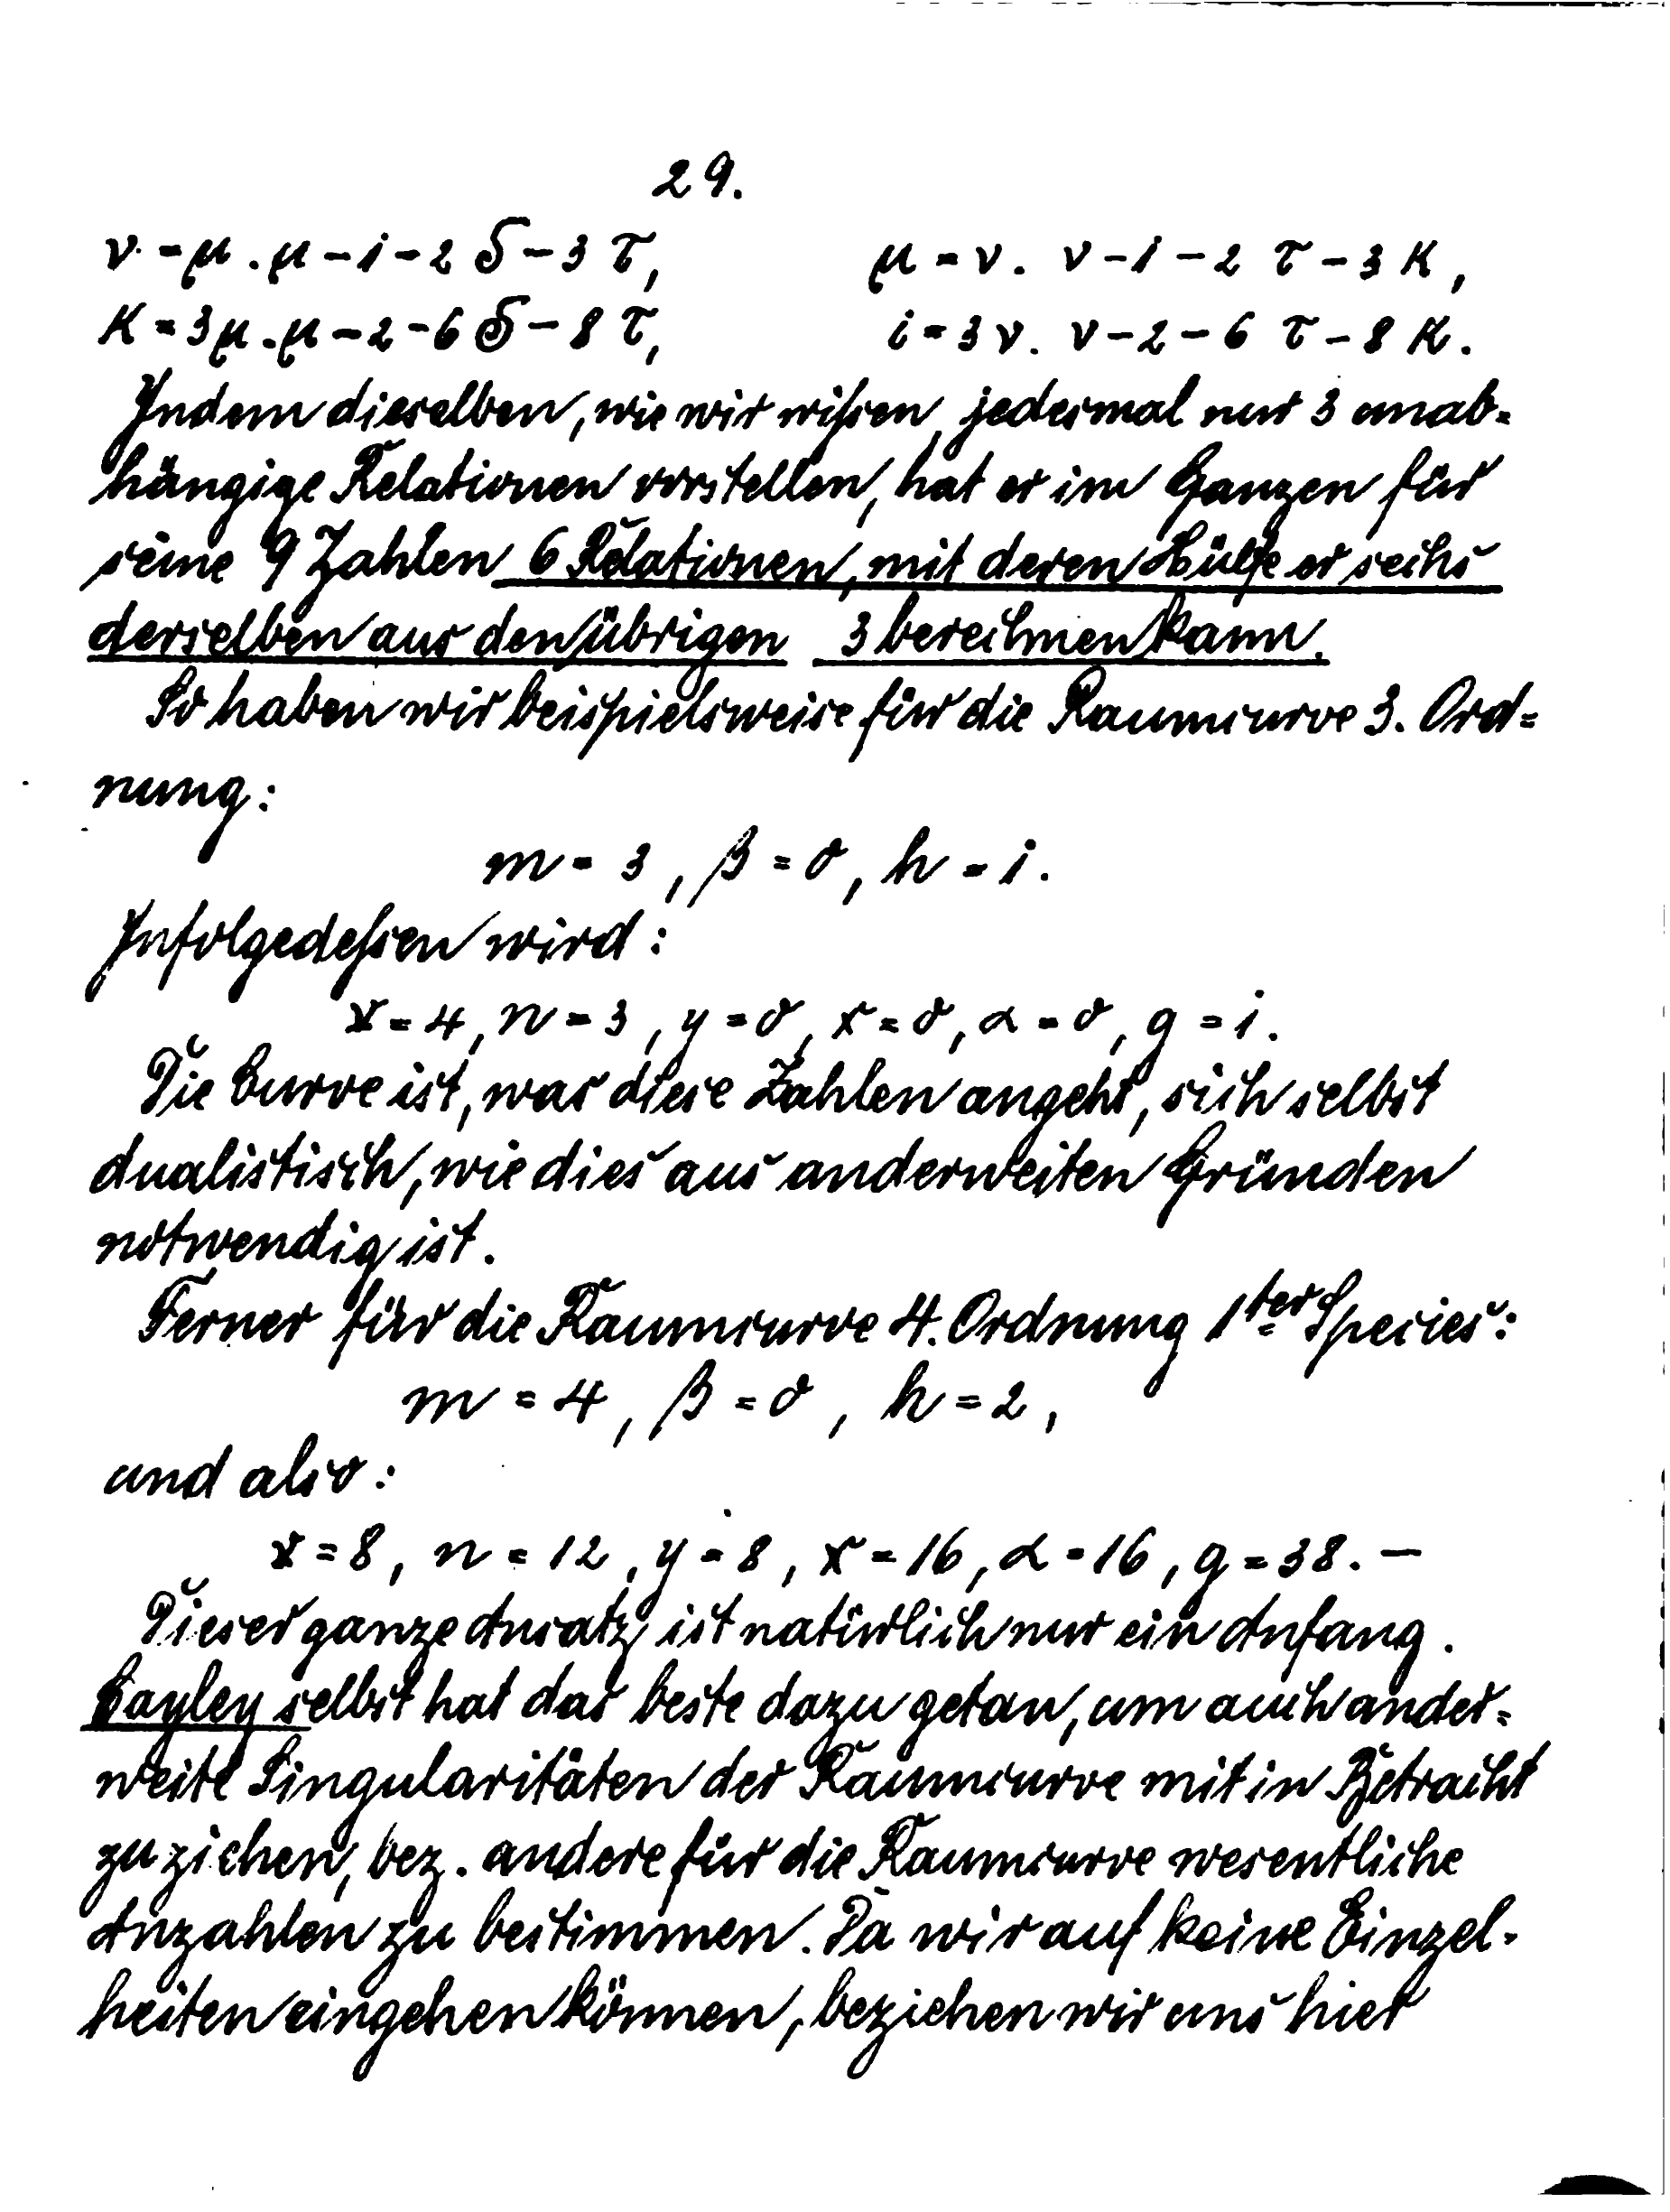 29.
ν = μ . μ - 1 - 2 δ - 3 τ, μ = ν . ν - 1 - 2 τ - 3 κ,
κ = 3 μ . μ - 2 - 6 δ - 8 τ, i = 3 ν . ν - 2 - 6 τ - 8 κ.
Indem dieselben, wie wir wissen, jedesmal nur 3 unab=
hängige Relationen vorstellen, hat er im Ganzen für
seine 9 Zahlen 6 Relationen, mit deren Hülfe er sechs
derselben aus den übrigen 3 berechnen kann.
So haben wir beispielsweise für die Raumcurve 3. Ord=
nung:
m = 3, β = 0, h = 1.
Infolgedessen wird:
r = 4, n = 3, y = 0, x = 0, α = 0, g = 1.
Die Curve ist, was diese Zahlen angeht, sich selbst
dualistisch, wie dies aus anderweiten Gründen
notwendig ist.
Ferner für die Raumcurve 4. Ordnung 1ter Species:
m = 4, β = 0, h = 2,
und also:
r = 8, n = 12, y = 8, x = 16, α = 16, g = 38. —
Dieser ganze Ansatz ist natürlich nur ein Anfang.
Cayley selbst hat das beste dazu getan, um auch ander=
weite Singularitäten der Raumcurve mit in Betracht
zu ziehen, bez. andere für die Raumcurve wesentliche
Anzahlen zu bestimmen. Da wir auf keine Einzel-
heiten eingehen können, beziehen wir uns hier